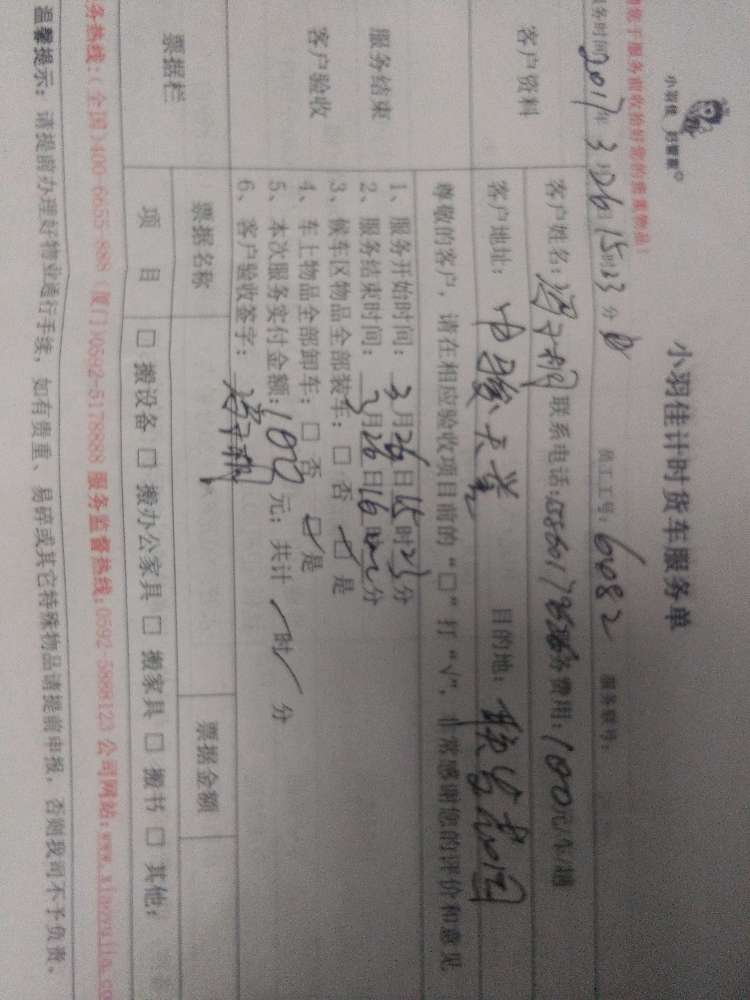 您于服务前收拾好您的贵重物品!
小羽佳 好管家
小羽佳计时货车服务单
服务时间2017年3月26日15时23分 员工工号:6082 服务联号:
客户资料
客户姓名: 联系电话: 费用:100元/小/趟
客户地址: 中骏天 目的地: 联
尊敬的客户,请在相应验收项目前的“□”打“√”,非常感谢您的评价和意见
服务结束
客户验收
1、服务开始时间:3月26日15时23分
2、服务结束时间:3月26日16时 分
3、候车区物品全部装车:□ 否 ☑ 是
4、车上物品全部卸车:□ 否 ☑ 是
5、本次服务实付金额:100元;共计 / 时 / 分
6、客户验收签字:
票据栏 票据名称 票据金额
项 目 □ 搬设备 □ 搬办公家具 □ 搬家具 □ 搬书 □ 其他:
务热线:(全国)400-6655-888 (厦门)0592-5178888 服务监督热线:0592-5888123 公司网站:www.xiaoyujia.co
温馨提示:请提前办理好物业通行手续,如有贵重、易碎或其它特殊物品请提前申报,否则我司不予负责。